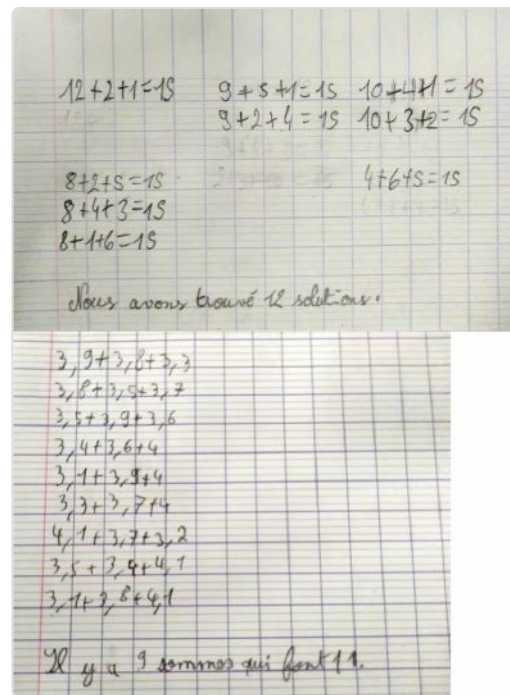 12+2+1=15 9+5+1=15 10+4+1=15
9+2+4=15 10+3+2=15
8+2+5=15 4+6+5=15
8+4+3=15
8+1+6=15
Nous avons trouvé 12 solutions.
3,9+3,8+3,3
3,8+3,5+3,7
3,5+3,9+3,6
3,4+3,6+4
3,1+3,9+4
3,3+3,7+4
4,1+3,7+3,2
3,5+3,4+4,1
3,1+3,8+4,1
Il y a 9 sommes qui font 11.